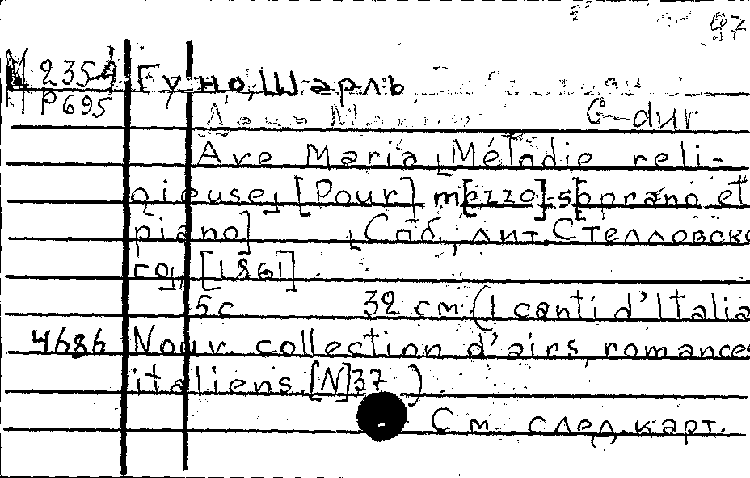 97
М 235-4 Гуно, Шарль
П Р695 G-dur
Ave Maria, Mélodie reli-
gieuse, [Pour] m[ezzo]-s[oprano et
piano] , Спб, лит. Стелловско
го, [1861]
5 с 32 см (I canti d'Italia
4686 Nouv. collection d'airs, romances
italiens [N]37 )
См. след. карт.